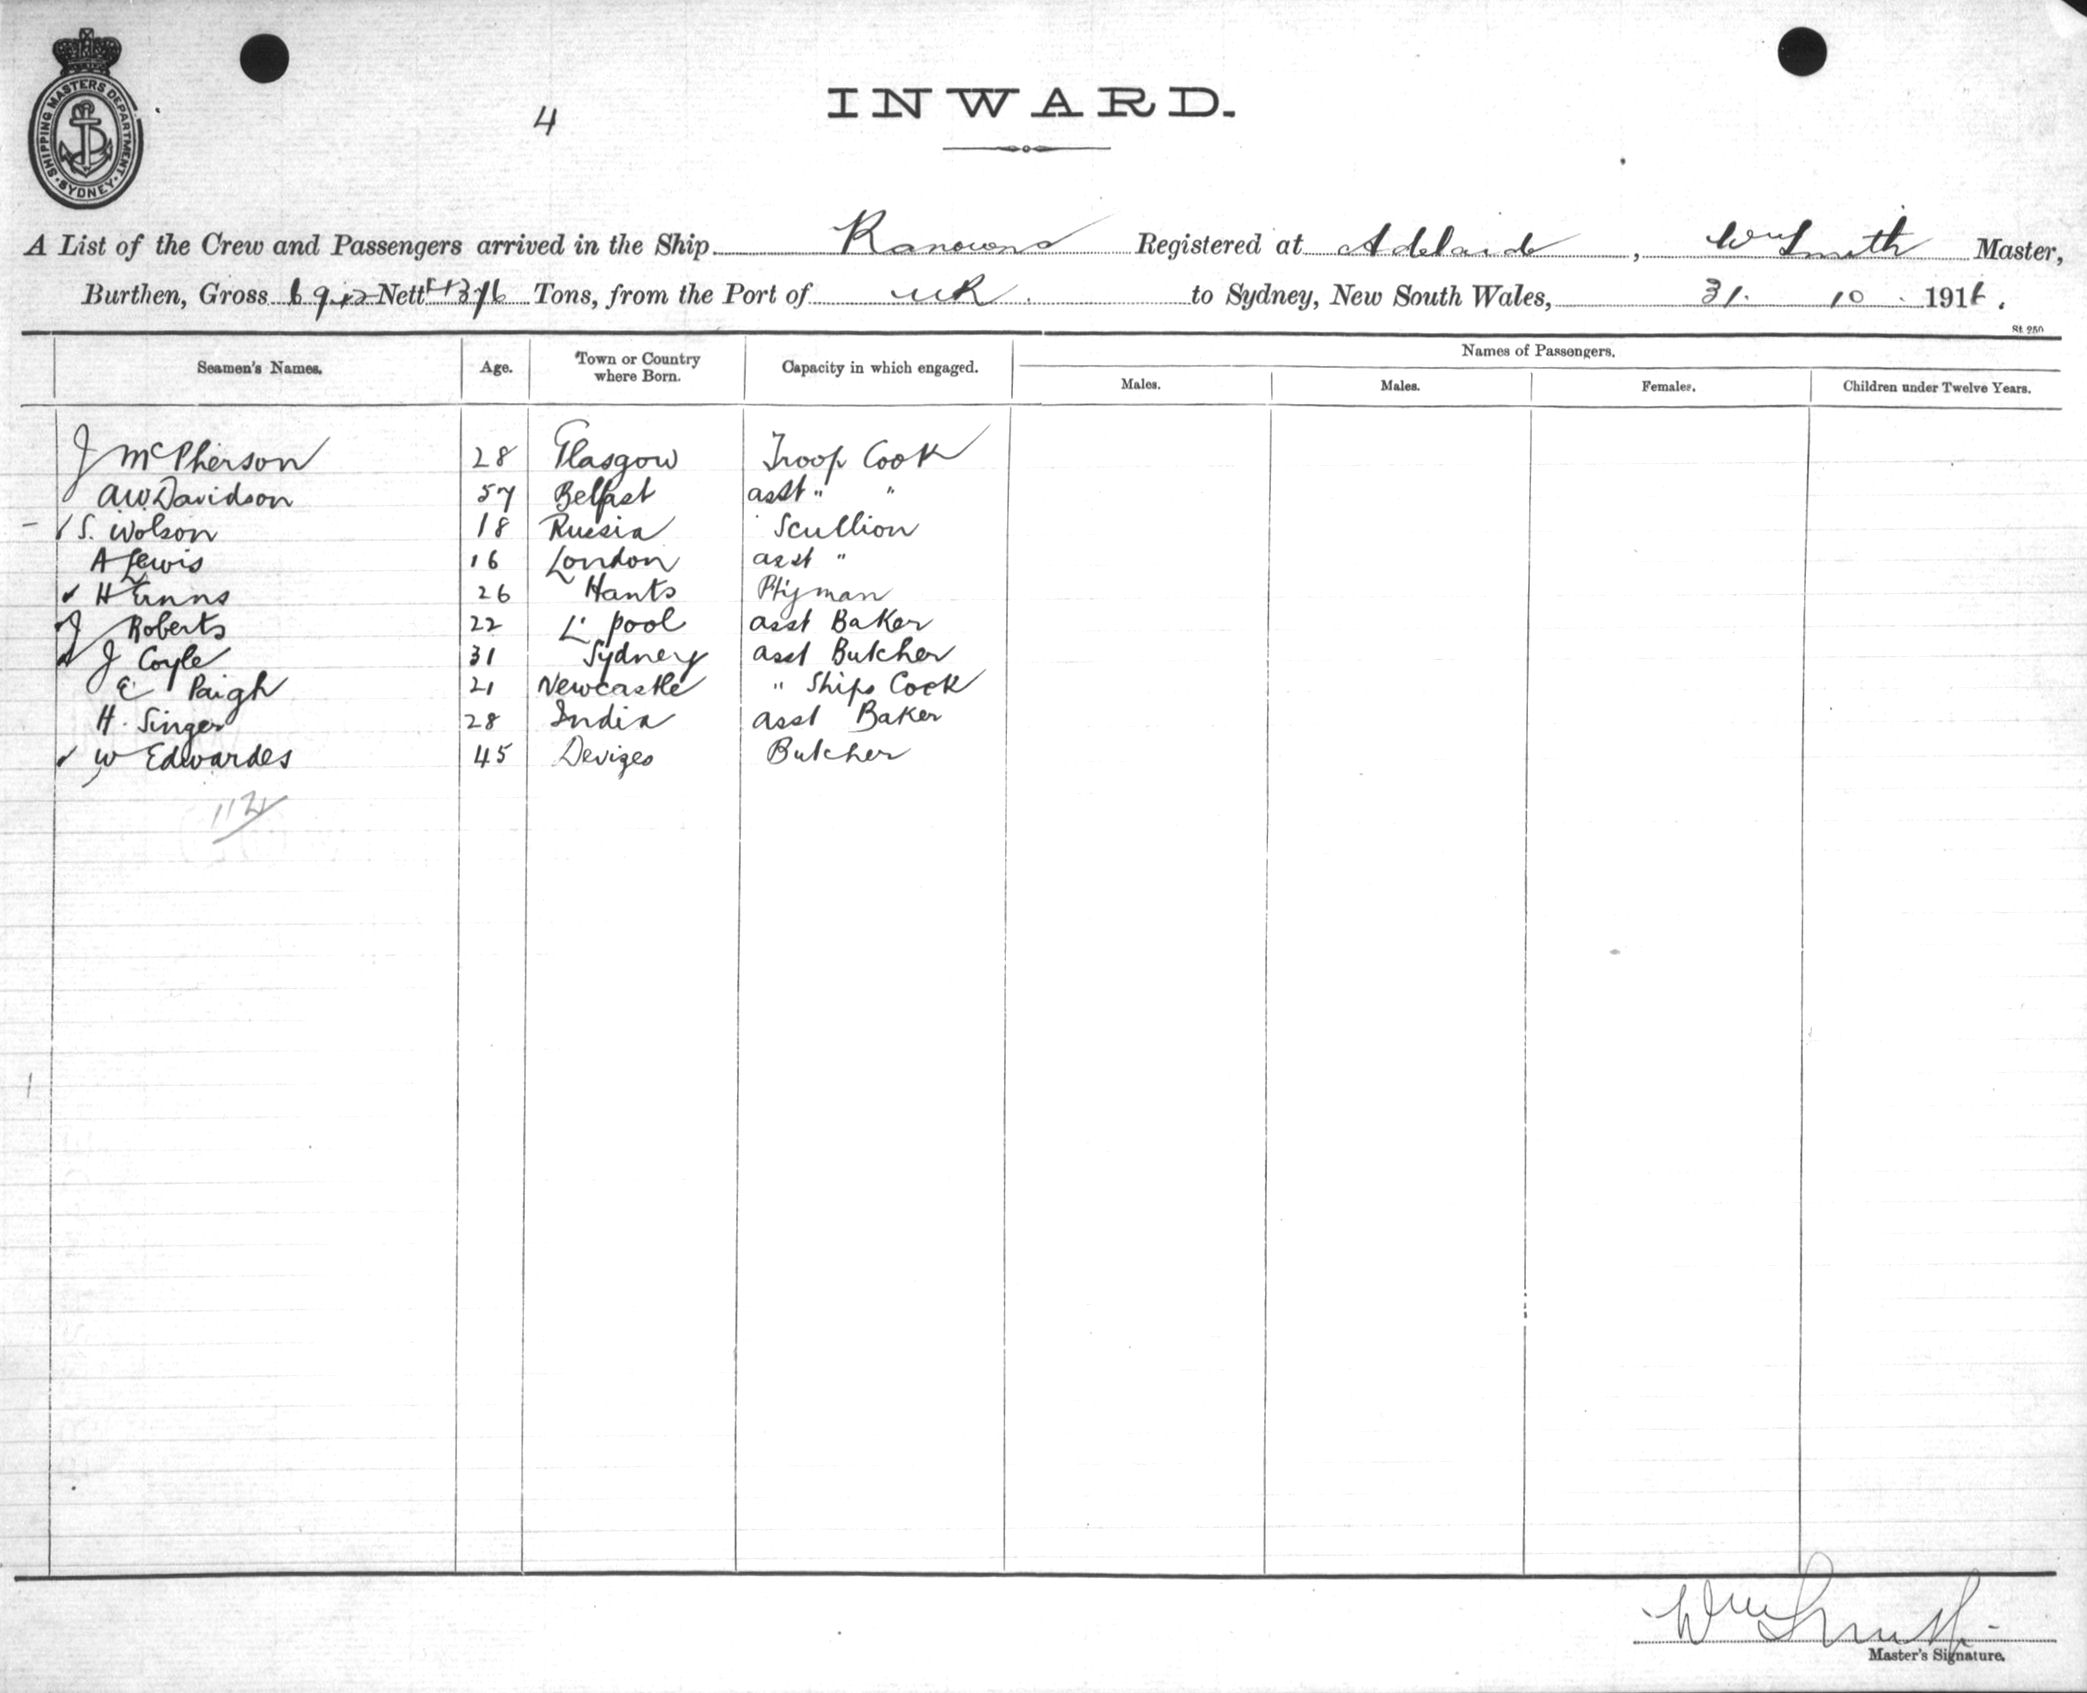 SHIPPING MASTERS DEPARTMENT
SYDNEY
4
INWARD.
A List of the Crew and Passengers arrived in the Ship Kanowna Registered at Adelaide, Wm Smith Master,
Burthen, Gross 6942 Nett Tons, from the Port of UK. to Sydney, New South Wales, 31. 10. 1916.
St. 250
Seamen's Names. Age. Town or Country where Born. Capacity in which engaged. Names of Passengers.
Males. Males. Females. Children under Twelve Years.
J McPherson 28 Glasgow Troop Cook
A.W. Davidson 57 Belfast asst " "
S. Wolson 18 Russia Scullion
A Lewis 16 London asst "
H 26 Hants
J Roberts 22 L'pool asst Baker
J Coyle 31 Sydney asst Butcher
E Paigh 21 Newcastle " Ships Cook
H. Singer 28 India asst Baker
W Edwardes 45 Devizes Butcher
112
Wm Smith
Master's Signature.